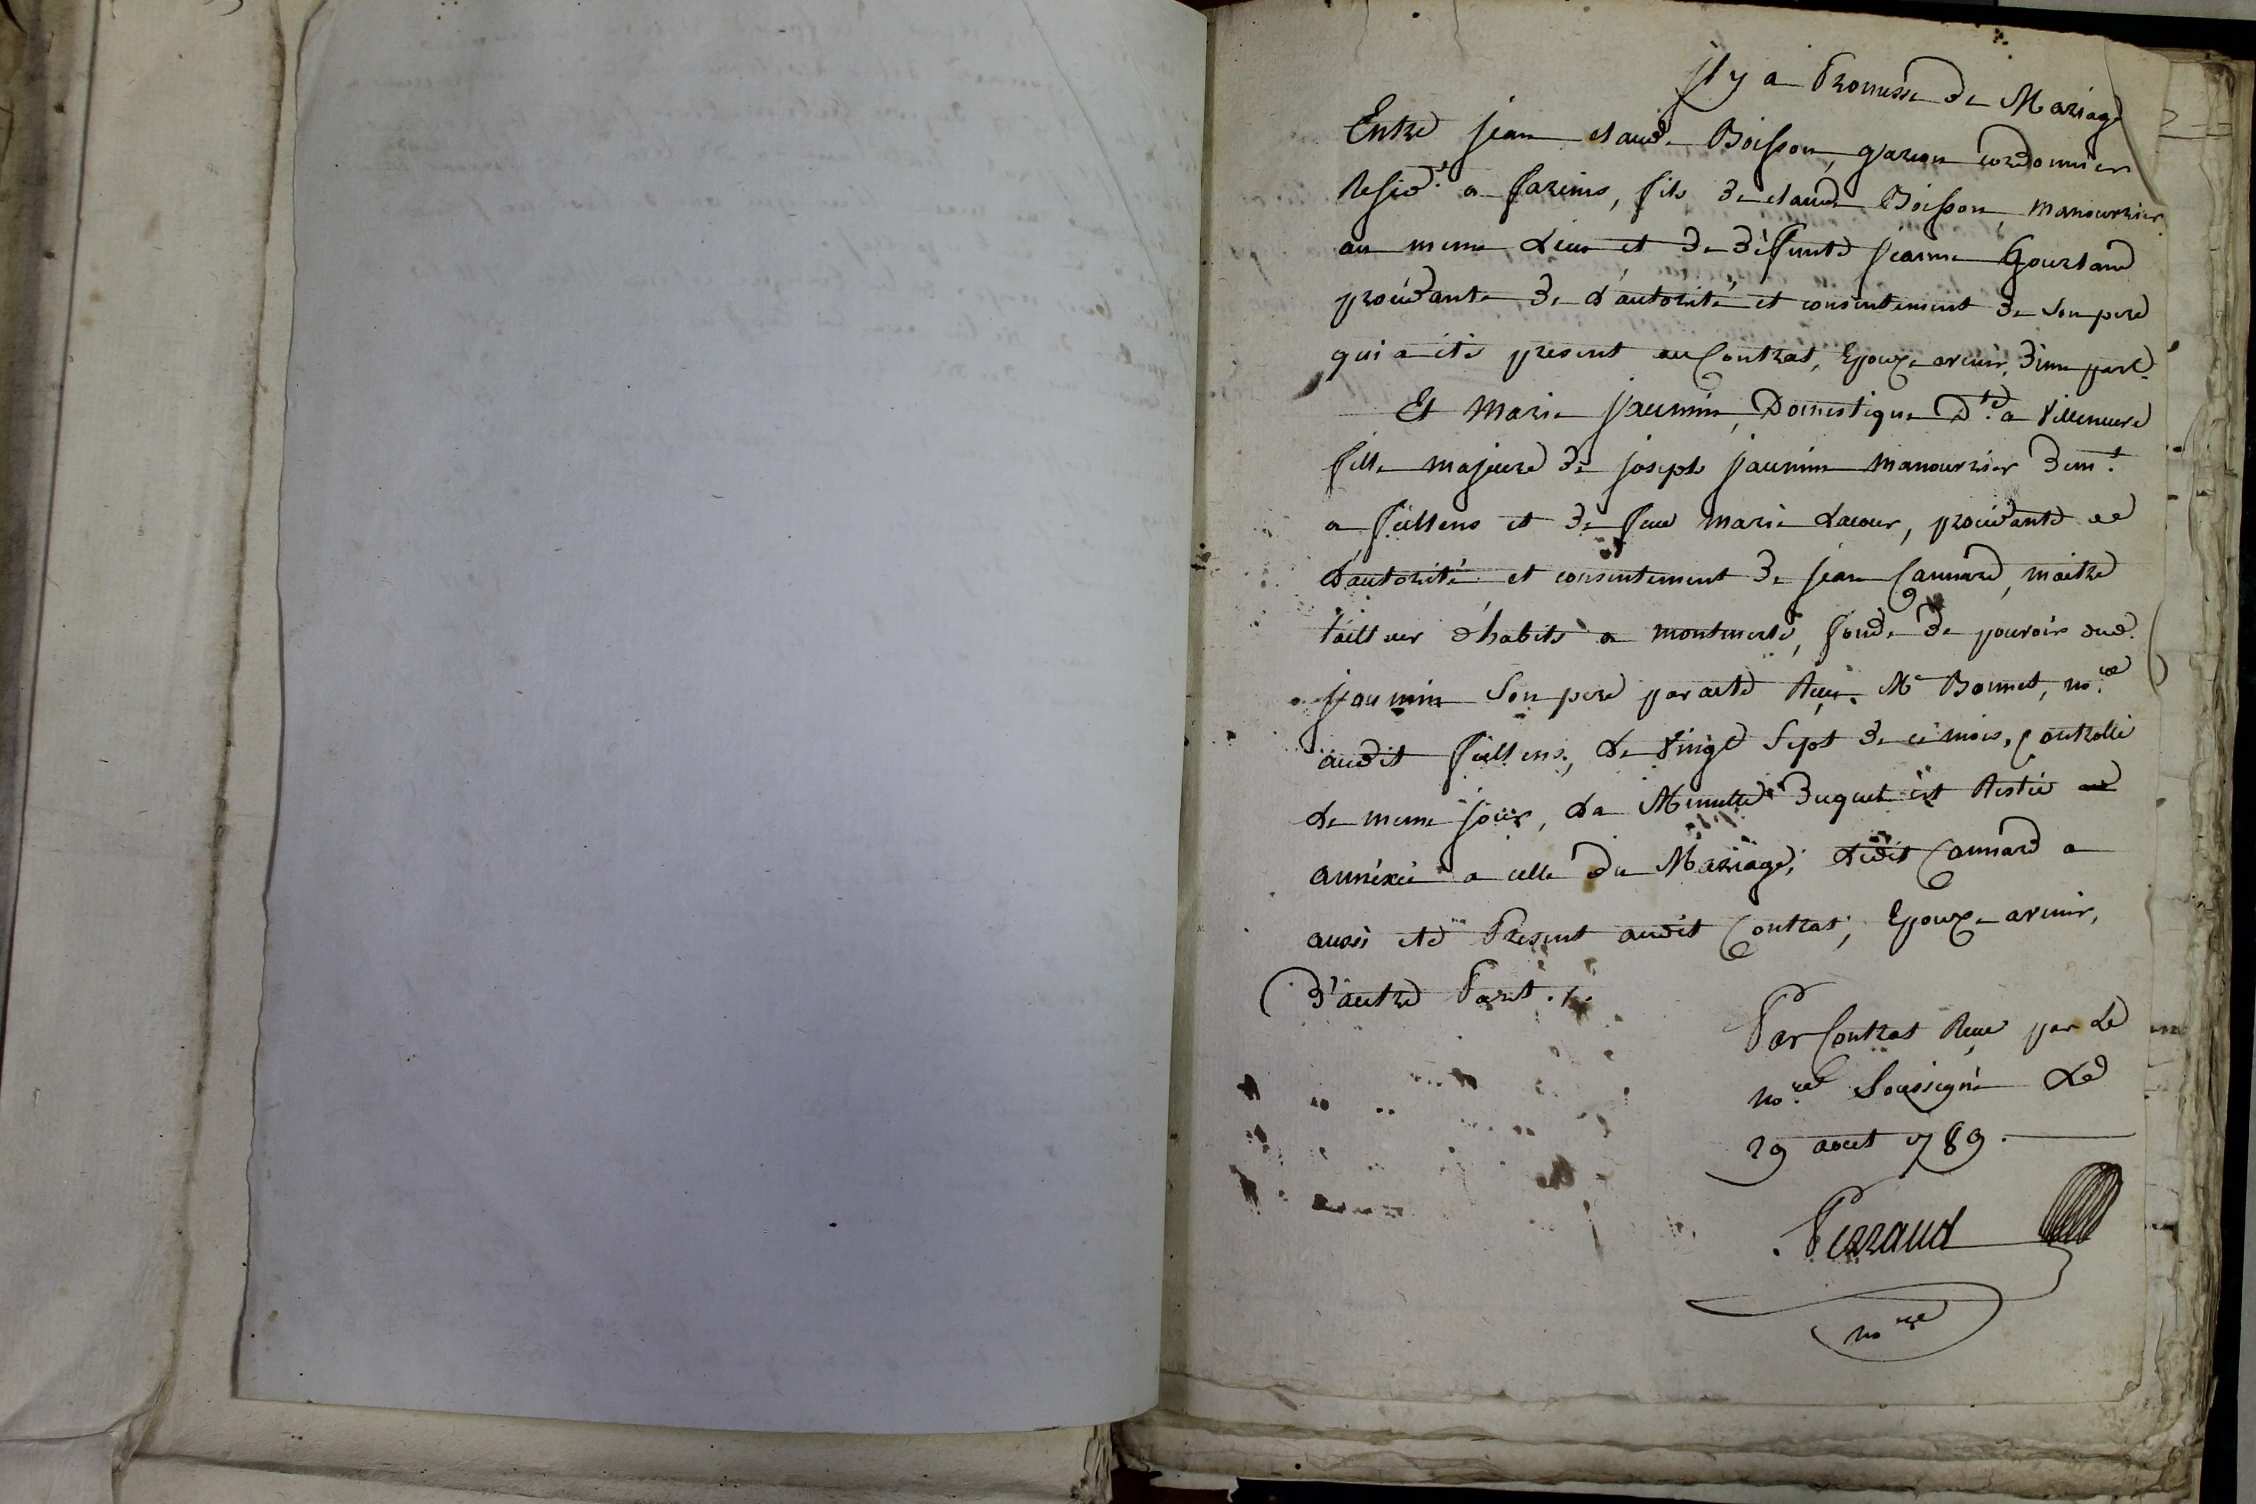 Il y a Promesse de Mariage
Entre jean claude Boisson, garcon cordonnier
Resid.t a fareins, fils de claude Boisson manouvrier
au meme Lieu et de deffunte jeanne Gourland
procédante de L'autorité et consentement de son pere
qui a été present au Contrat, Epoux avenir, d'une part.
Et Marie jaunin, Domestique D.te a Villeneuve
fille majeure de joseph jaunin manouvrier dem.t
a feillens et de feue marie Lacour, procédante
L'autorité et consentement de jean Cannard, maitre
tailleur d'habits a montmerle, fondé de pouvoir dud.
jaunin son pere par acte Reçu Me Bonnet, no.re
audit feillens, Le Vingt Sept de ce mois, Controllé
Le meme jour, La Minutte duquel est Restée
annéxée a celle du Mariage; Ledit Cannard a
aussi été Present audit Contrat, Epouse avenir,
D'autre Part ./.
Par Contrat Reçu par Le
no.re Soussigné Le
29 aout 1789.
Perraud
no.re